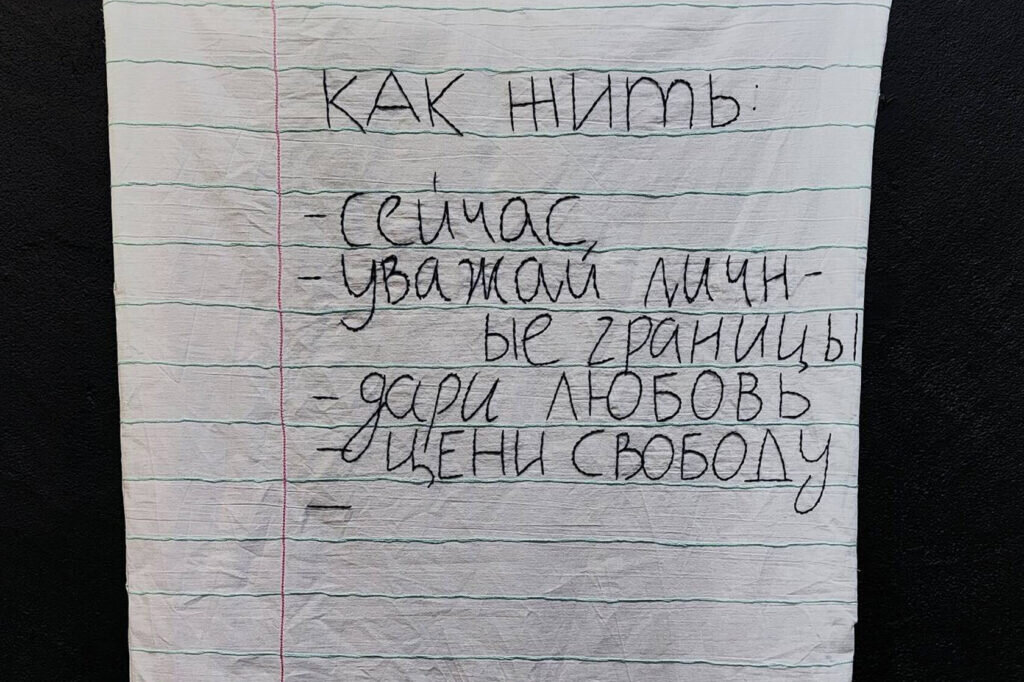 КАК ЖИТЬ:
- сейчас,
- уважай личн-
ые границы
- дари ЛЮБОВЬ
- ЦЕНИ СВОБОДУ
-